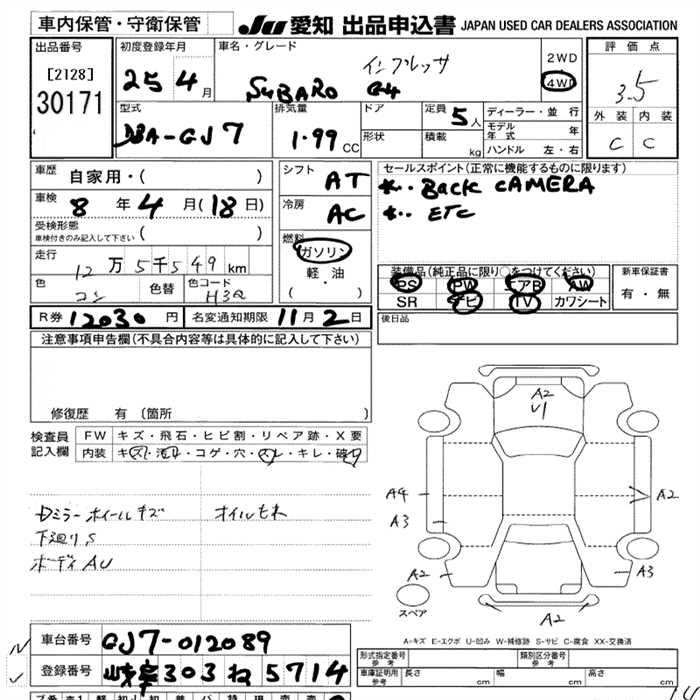 車内保管・守衛保管
JU 愛知 出品申込書 JAPAN USED CAR DEALERS ASSOCIATION
出品番号
[2128]
30171
初度登録年月
25 4月
車名・グレード
インプレッサ
SUBARU G4
2WD
4WD
評価点
3.5
外装 内装
C C
型式
DBA-GJ7
排気量
1.99 CC
ドア
形状
定員 5人
積載 kg
ディーラー・並行
モデル年式 年
ハンドル 左・右
車歴 自家用・( )
車検 8年4月(18日)
受検形態
車検付きのみ記入して下さい ( )
走行 12万5千549km
色 コン
色替
色コード H3Q
シフト AT
冷房 AC
燃料
ガソリン
軽・油
( )
セールスポイント(正常に機能するものに限ります)
*.. Back CAMERA
*.. ETC
装備品(純正品に限り○をつけてください)
PS PW エアB AW
SR ナビ TV カワシート
新車保証書
有・無
R券 12030円
名変通知期限 11月2日
後日品
注意事項申告欄(不具合内容等は具体的に記入して下さい)
修復歴 有 〔箇所 〕
検査員記入欄
FW キズ・飛石・ヒビ割・リペア跡・X要
内装 キズ・汚れ・コゲ・穴・スレ・キレ・破れ
ドミラー ホイールキズ
オイルモレ
下廻りS
ボディAU
A2
A4
A2
A3
A2
A3
スペア
A2
A=キズ E=エクボ U=凹み W=補修跡 S=サビ C=腐食 XX=交換済
車台番号 GJ7-012089
登録番号 岐阜 303 ね 5714
型式指定番号
参考
類別区分番号
参考
車庫証明用
参考
長さ cm
幅 cm
高さ cm